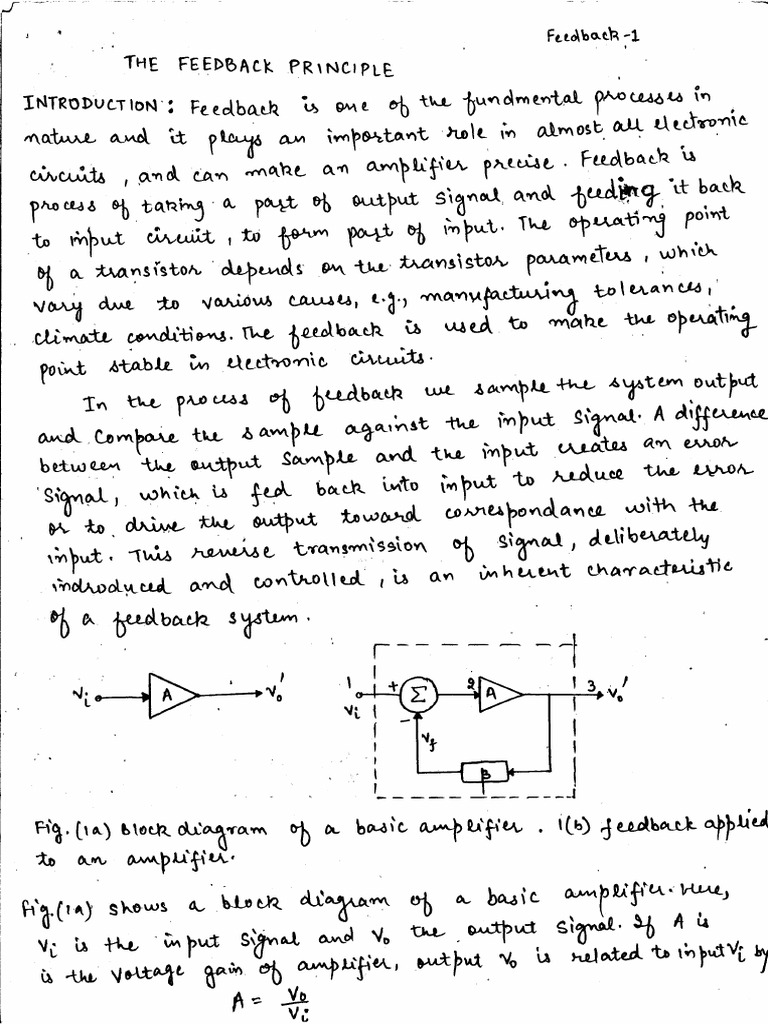 Feedback-1
THE FEEDBACK PRINCIPLE
INTRODUCTION: Feedback is one of the fundmental processes in
nature and it plays an important role in almost all electronic
circuits, and can make an amplifier precise. Feedback is
process of taking a part of output signal and feeding it back
to input circuit, to form part of input. The operating point
of a transistor depends on the transistor parameters, which
vary due to various causes, e.g., manufacturing tolerances,
climate conditions. The feedback is used to make the operating
point stable in electronic circuits.
In the process of feedback we sample the system output
and compare the sample against the input signal. A difference
between the output sample and the input creates an error
signal, which is fed back into input to reduce the error
or to drive the output toward correspondance with the
input. This reverse transmission of signal, deliberately
indroduced and controlled, is an inherent characteristic
of a feedback system.
Vi A Vo'
1 Vi + Σ 2 A 3 Vo'
− Vf
β
Fig.(1a) Block diagram of a basic amplifier. 1(b) feedback applied
to an amplifier.
Fig.(1a) shows a block diagram of a basic amplifier. Here,
Vi is the input signal and Vo the output signal. If A is
is the voltage gain of amplifier, output Vo is related to input Vi by
A = Vo/Vi